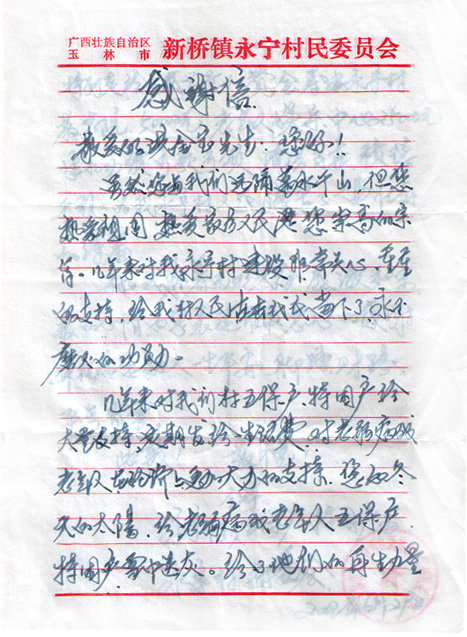 广西壮族自治区
玉林市
新桥镇永宁村民委员会
感谢信
敬爱的 先生：您好！！
虽然您与我们远隔万水千山，但您
热爱祖国 热爱家乡人民是您崇高的
几年来对我永宁村建设非常关心，
的支持，给我村人民 当下了永不
磨灭的功勋。
几年来对我们村五保户、特困户给
大量支持，定期发给生活费，对老弱病残
老年人 大力的支持，您如冬
天的太阳，给老弱病残老年人五保户、
特困户雪中送炭。给了他们的再生力量